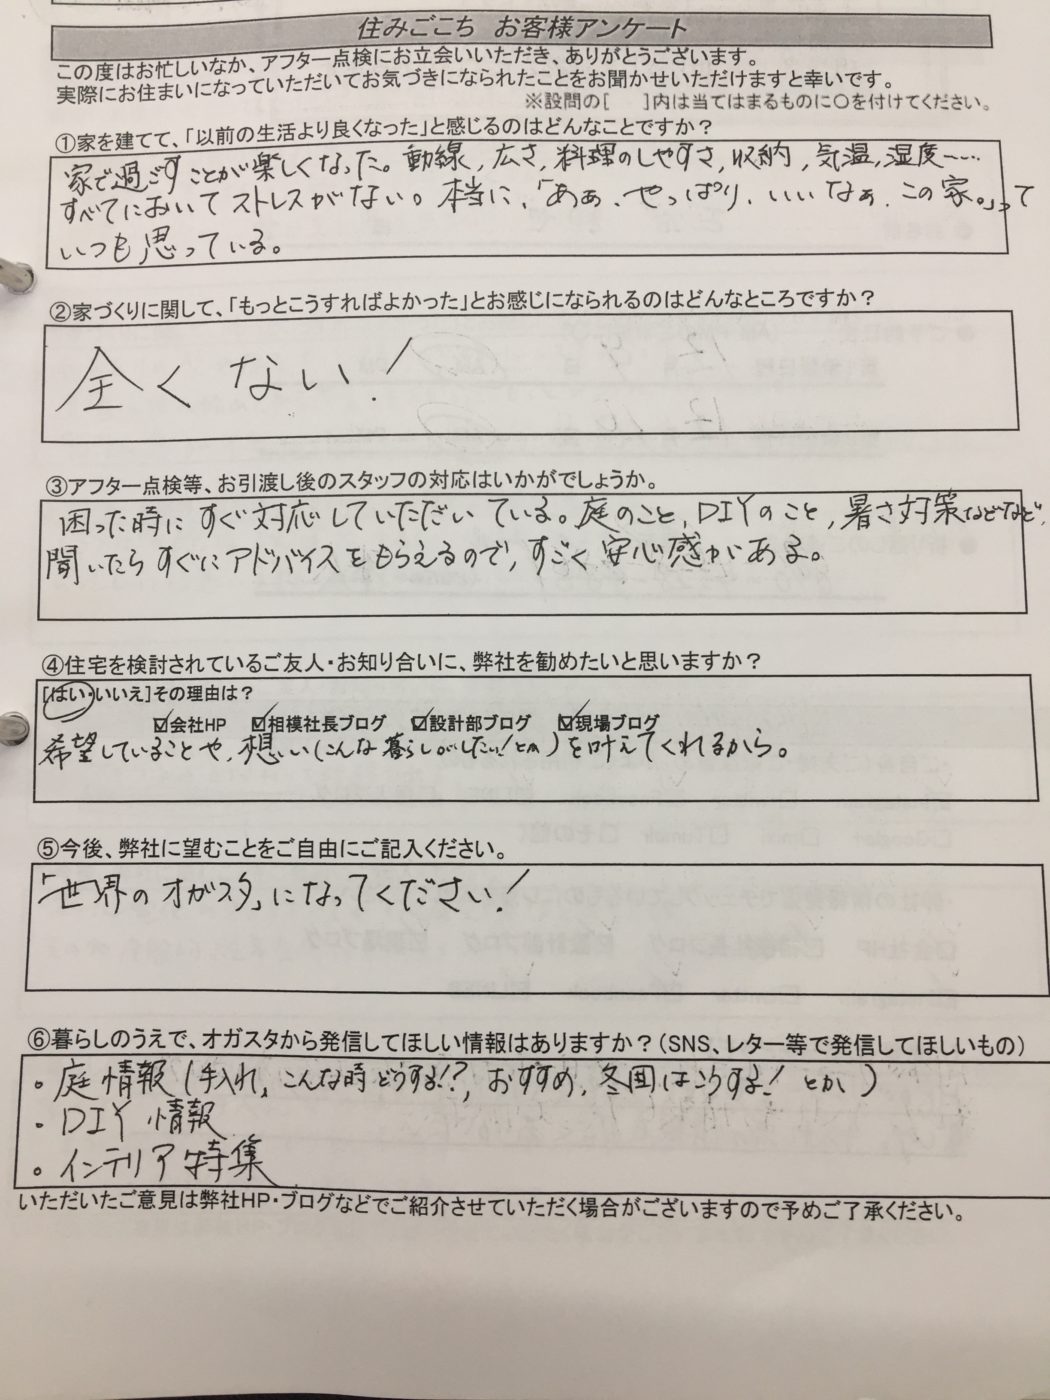 住みごこち お客様アンケート
この度はお忙しいなか、アフター点検にお立会いいただき、ありがとうございます。
実際にお住まいになっていただいてお気づきになられたことをお聞かせいただけますと幸いです。
※設問の[ ]内は当てはまるものに○を付けてください。
①家を建てて、「以前の生活より良くなった」と感じるのはどんなことですか？
家で過ごすことが楽しくなった。動線，広さ，料理のしやすさ，収納，気温，湿度……
すべてにおいてストレスがない。本当に、「あぁ、やっぱり、いいなぁ、この家。」って
いつも思っている。
②家づくりに関して、「もっとこうすればよかった」とお感じになられるのはどんなところですか？
全くない！
③アフター点検等、お引渡し後のスタッフの対応はいかがでしょうか。
困った時にすぐ対応していただいている。庭のこと，DIYのこと，暑さ対策などなど，
聞いたらすぐにアドバイスをもらえるので，すごく安心感がある。
④住宅を検討されているご友人・お知り合いに、弊社を勧めたいと思いますか？
[はい・いいえ]その理由は？
☑会社HP ☑相模社長ブログ ☑設計部ブログ ☑現場ブログ
希望していることや，想い（こんな暮らしがしたい！とか）を叶えてくれるから。
⑤今後、弊社に望むことをご自由にご記入ください。
「世界のオガスタ」になってください！
⑥暮らしのうえで、オガスタから発信してほしい情報はありますか？（SNS、レター等で発信してほしいもの）
・庭情報（手入れ，こんな時どうする！？，おすすめ，冬囲はこうする！とか）
・DIY情報
・インテリア特集
いただいたご意見は弊社HP・ブログなどでご紹介させていただく場合がございますので予めご了承ください。